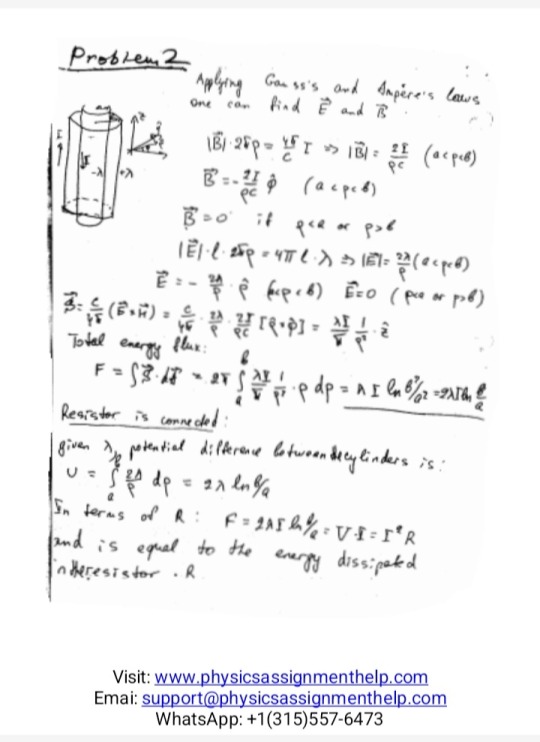 Problem 2
Applying Gauss's and Ampère's laws
one can find E⃗ and B⃗.
a
I
I
-λ
+λ
z
|B⃗|·2πρ = 4π/c I ⇒ |B⃗| = 2I/ρc (a<ρ<b)
B⃗ = - 2I/ρc φ̂ (a<ρ<b)
B⃗ = 0 if ρ<a or ρ>b
|E⃗|·l·2πρ = 4π l·λ ⇒ |E| = 2λ/ρ (a<ρ<b)
E⃗ = - 2λ/ρ · ρ̂ (a<ρ<b) E⃗=0 (ρ<a or ρ>b)
S⃗ = c/4π (E⃗×H⃗) = c/4π · 2λ/ρ · 2I/ρc [ρ̂×φ̂] = λI/π 1/ρ² · ẑ
Total energy flux:
F = ∫S⃗·df⃗ = 2π ∫ₐᵇ λI/π 1/ρ² · ρ dρ = λ I ln b²/a² = 2λI ln b/a
Resistor is connected:
given λ, potential difference between the cylinders is:
U = ∫ₐᵇ 2λ/ρ dρ = 2λ ln b/a
In terms of R: F = 2λI ln b/a = U·I = I²R
and is equal to the energy dissipated
in the resistor . R
Visit: www.physicsassignmenthelp.com
Emai: support@physicsassignmenthelp.com
WhatsApp: +1(315)557-6473